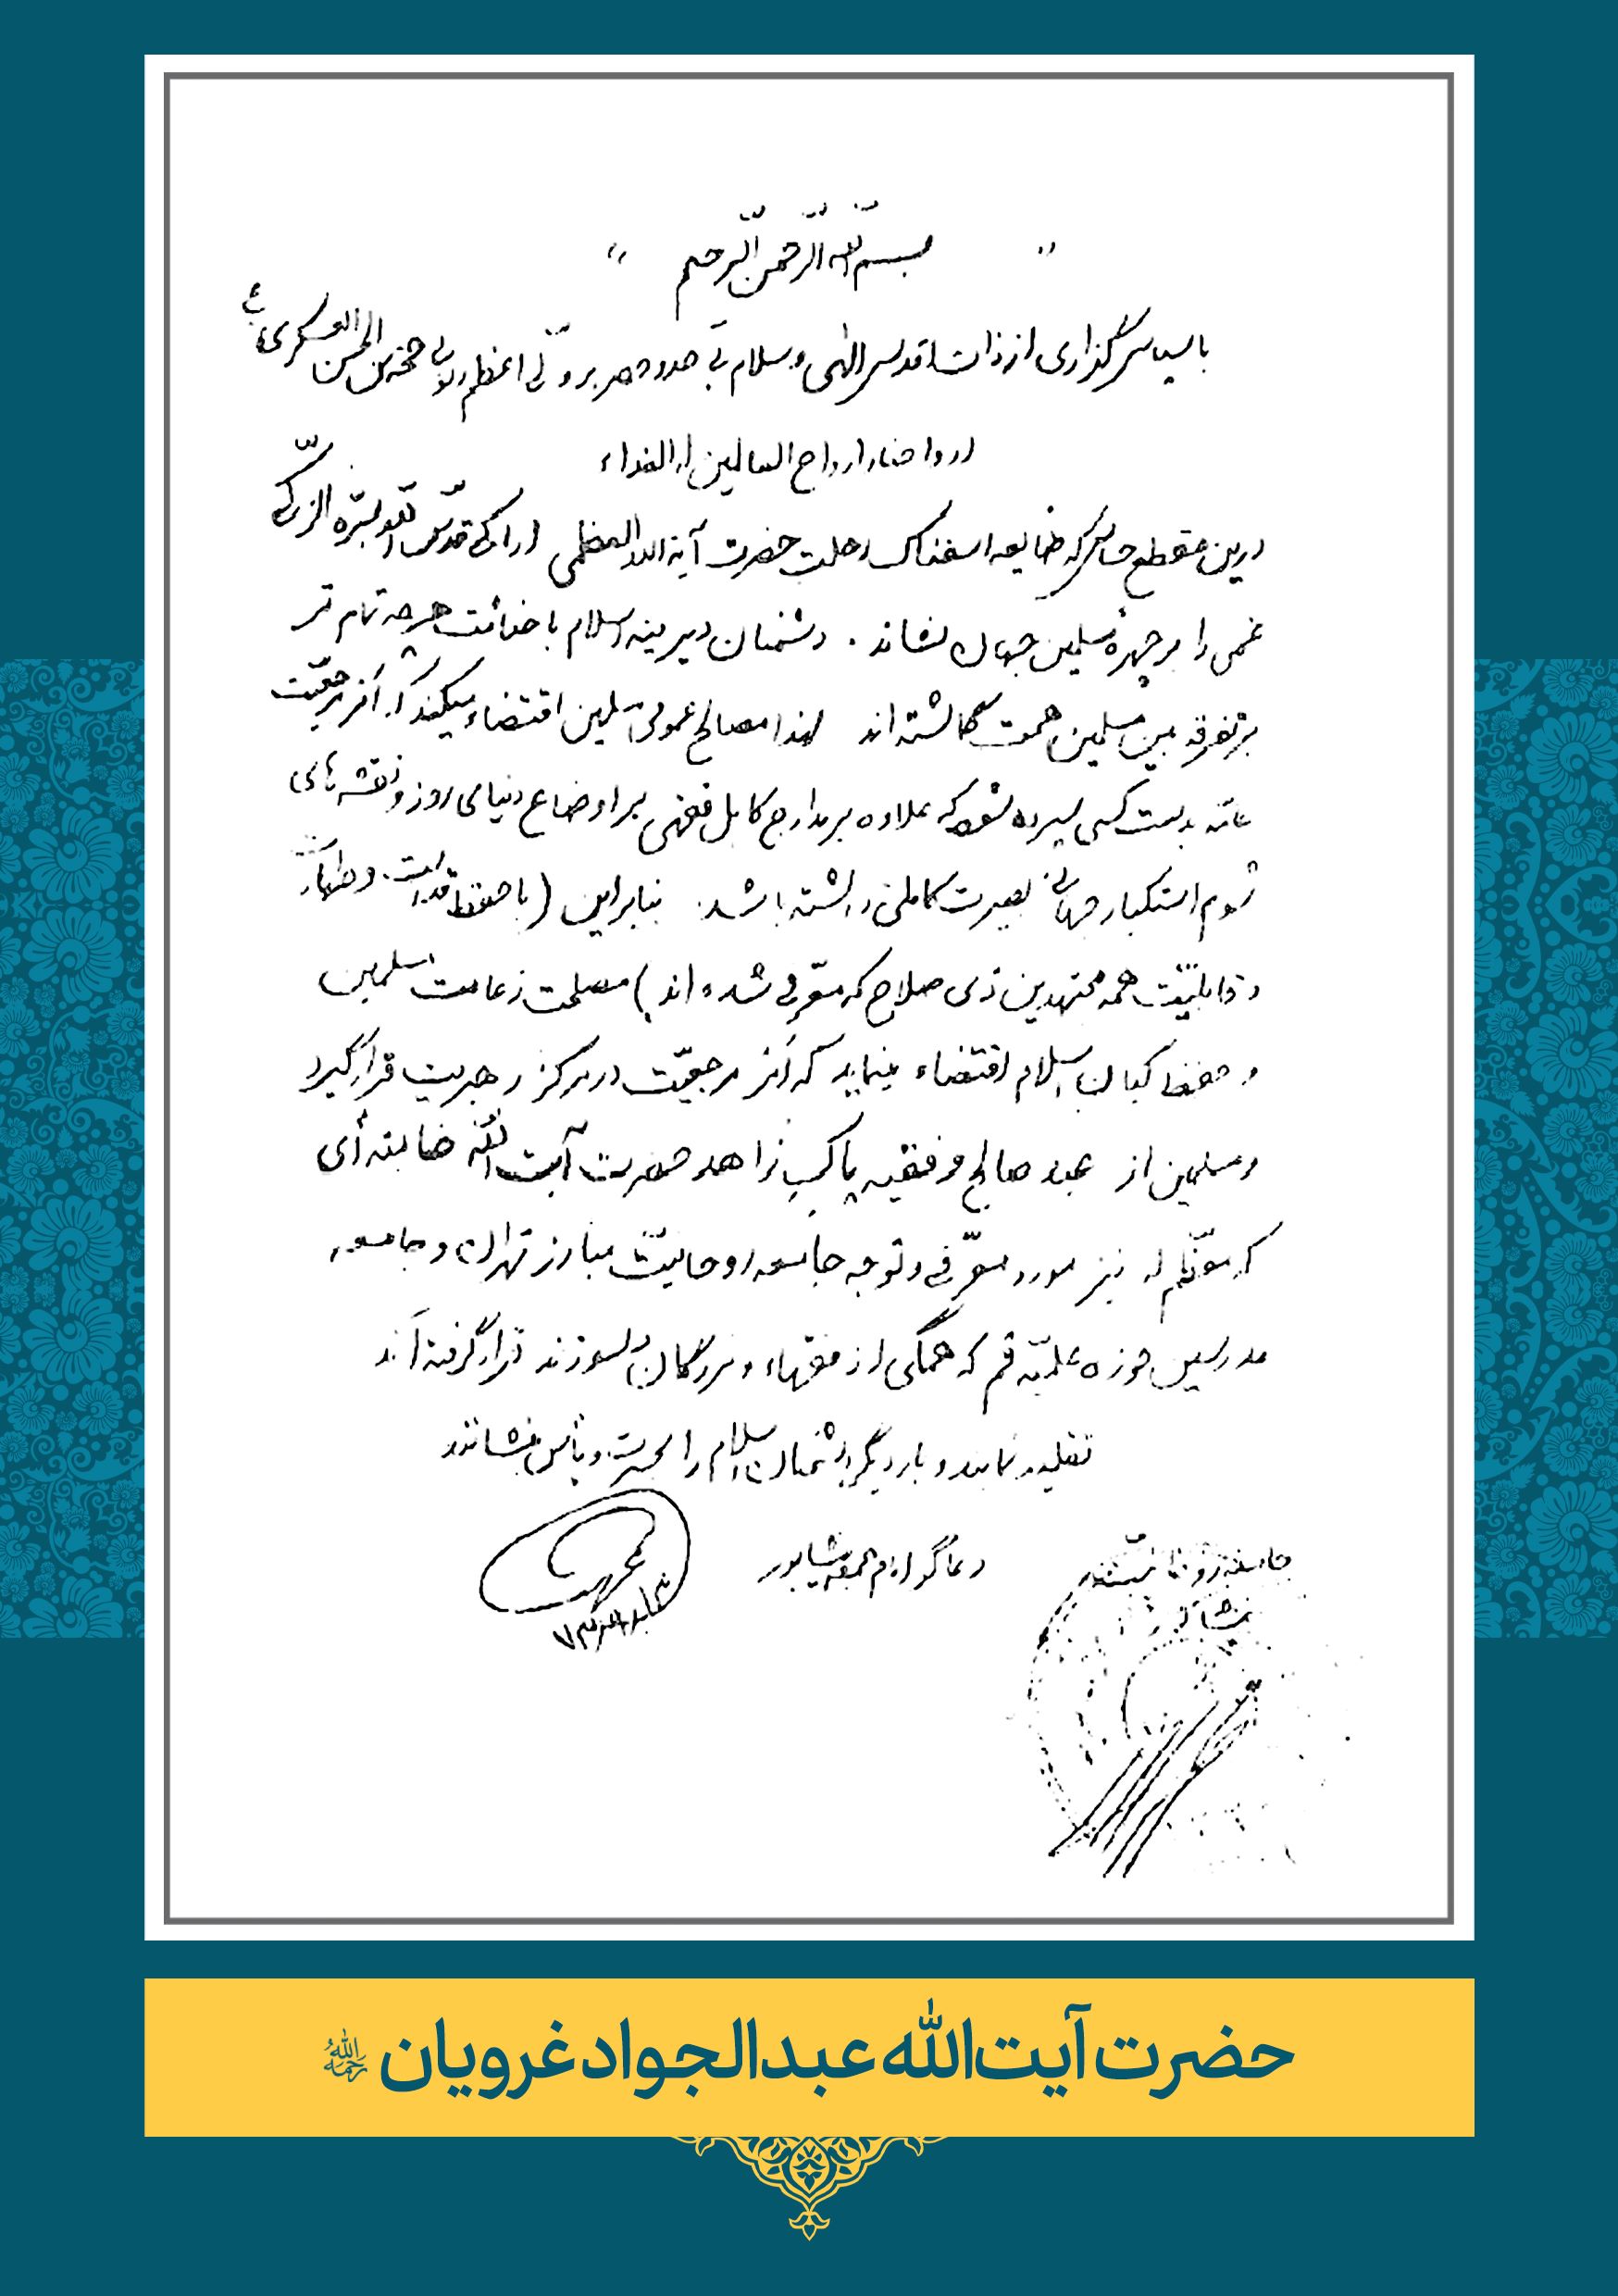 " بسم الله الرّحمن الرّحیم "
با سپاسگزاری از ذات اقدس الهی و سلام بی حد و حصر بر ولی اعظم ربوبی حجة بن الحسن العسکری
ارواحنا و ارواح العالمین له الفداء
درین مقطع حساس که ضایعه اسفناک رحلت حضرت آیة الله العظمی اراکی قدّس الله سرّه الزکّی
غمی را بر چهره مسلمین جهان نشاند. دشمنان دیرینه اسلام با خباثت هر چه تمام تر
بر تفرقه بین مسلمین همت گماشته اند لهذا مصالح عمومی مسلمین اقتضاء میکند که امر مرجعیّت
عامّه بدست کسی سپرده شود که علاوه بر مدارج کامل فقهی بر اوضاع دنیای روز و نقشه های
شوم استکبار جهانی بصیرت کاملی داشته باشد. بنابراین (با حفظ قداست و طهارت
و قابلیّت همه مجتهدین ذی صلاح که معرّفی شده اند) مصلحت زعامت مسلمین
و حفظ کیان اسلام اقتضاء مینماید که امر مرجعیّت در مرکز رهبریت قرار گیرد
و مسلمین از عبد صالح و فقیه پاکب زاهد حضرت آیت الله خامنه ای
که معظّم له نیز مورد معرّفی و توجه جامعه روحانیّت مبارز تهران و جامعه
مدرسین حوزه علمیّه قم که همگی از فقهاء و بزرگان دلسوزند قرار گرفته اند
تقلید نمایند و بار دیگر دشمنان اسلام را بحسرت و یأس بنشانند
دعاگو امام جمعه نیشابور
جامعه روحانیت
نیشابور
حضرت آیت‌الله عبدالجواد غرویان رحمه‌الله